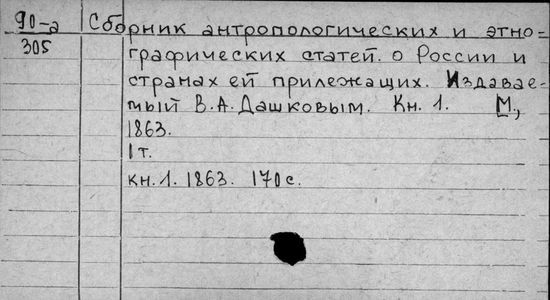 90-а Сборник антропологических и этно-
305 графических статей о России и
странах ей прилежащих. Издавае-
мый В.А. Дашковым. Кн. 1. М.,
1863.
1 т.
кн. 1. 1863. 170 с.